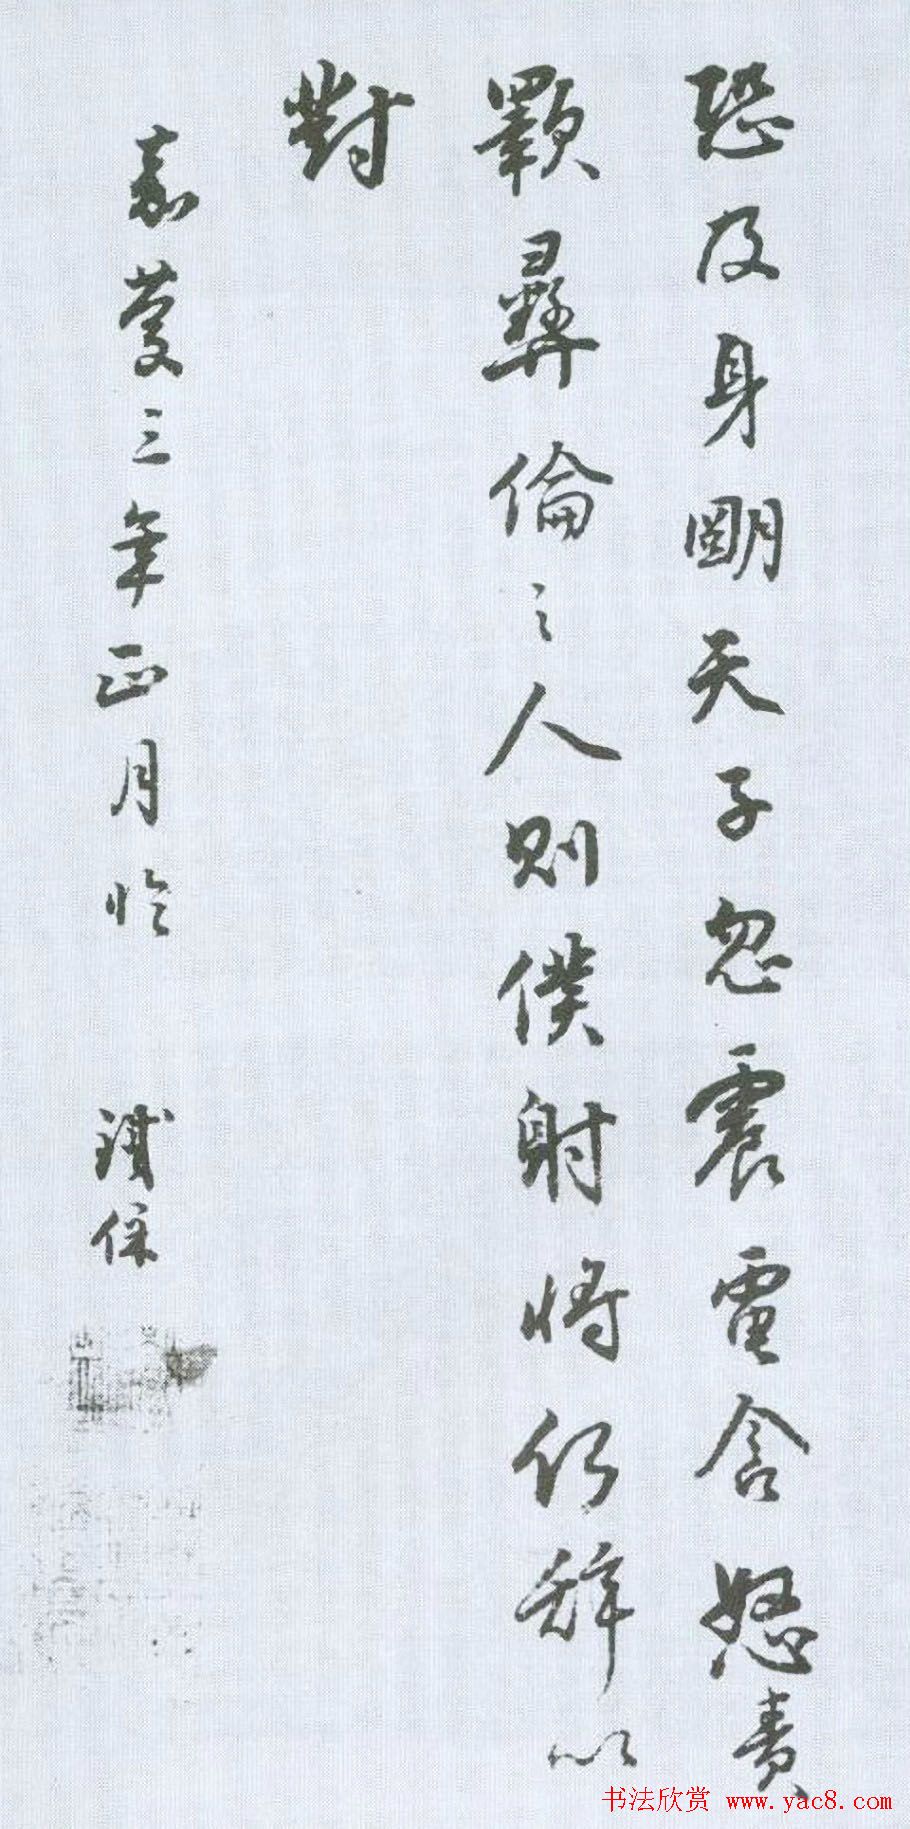 恐及身明天子忽震電含怒責
斁彝倫之人則僕射将何辭以
對
嘉慶三年正月臨 鐵保
书法欣赏 www.yac8.com